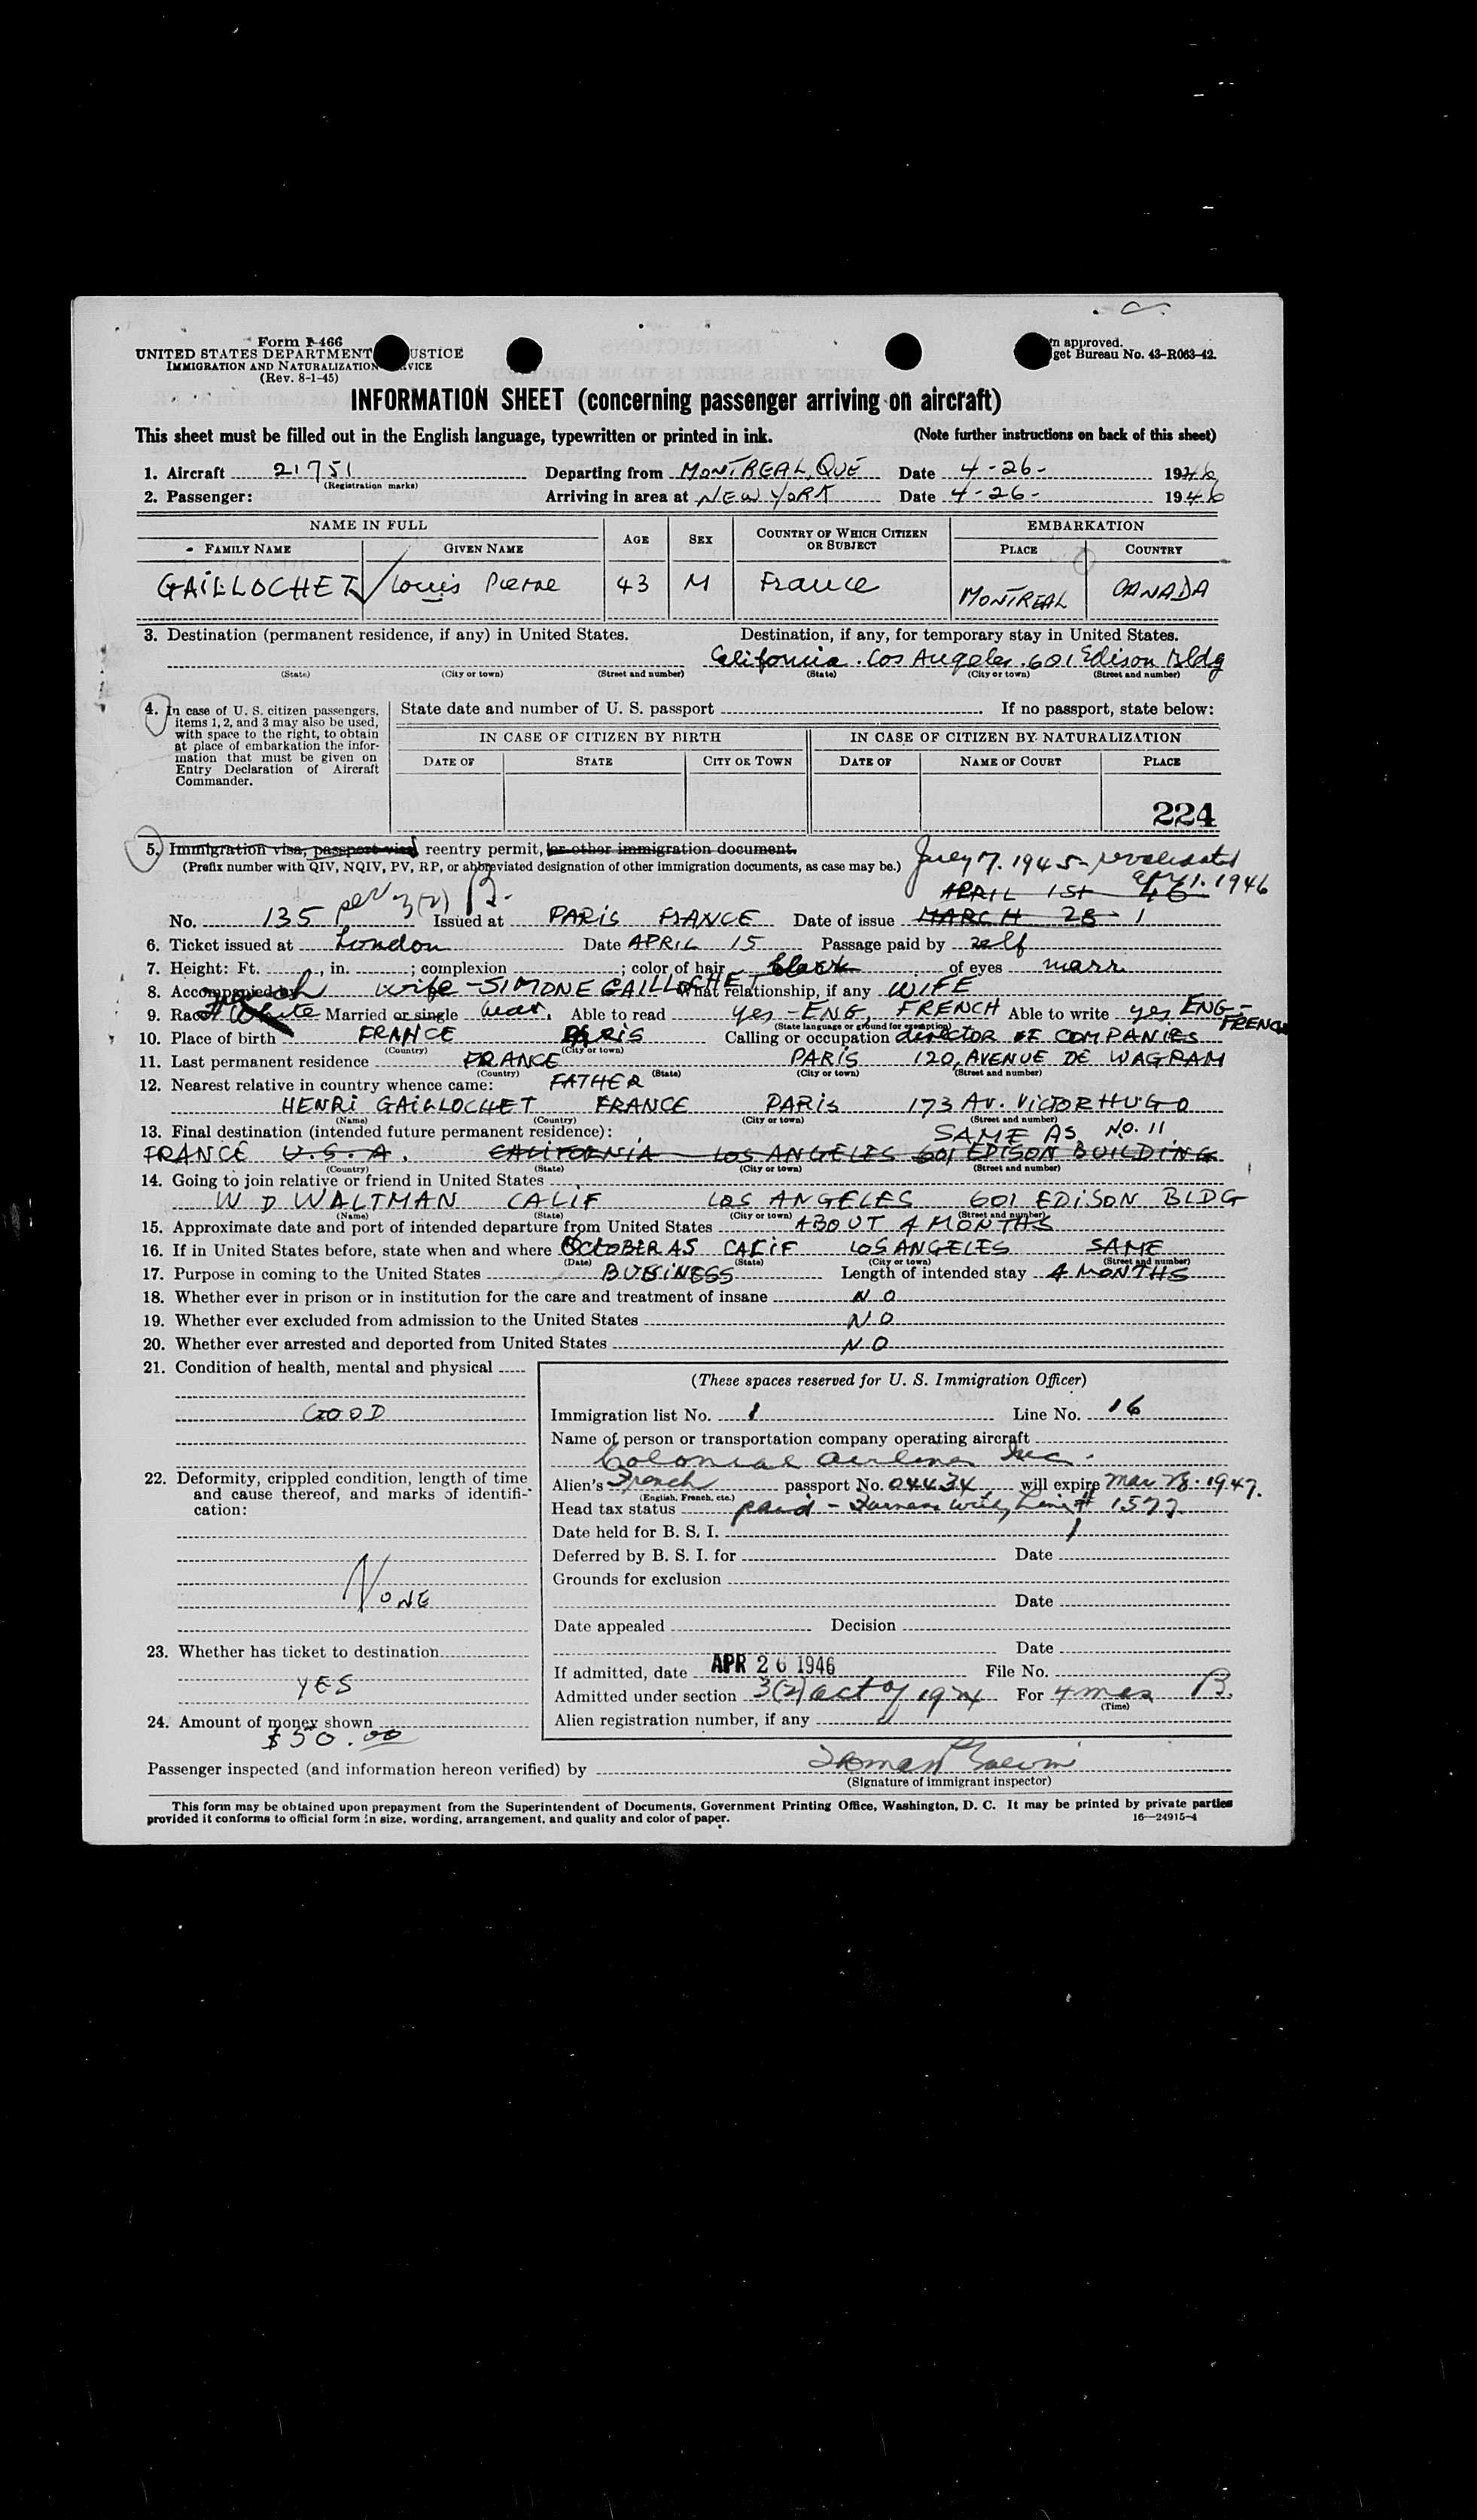 Form I-466
UNITED STATES DEPARTMENT USTICE
IMMIGRATION AND NATURALIZATION VICE
(Rev. 8-1-45)
n approved.
get Bureau No. 43-R063-42.
INFORMATION SHEET (concerning passenger arriving on aircraft)
This sheet must be filled out in the English language, typewritten or printed in ink. (Note further instructions on back of this sheet)
1. Aircraft 21751 Departing from MONTREAL, QUE Date 4-26- 1946
(Registration marks)
2. Passenger: Arriving in area at NEW YORK Date 4-26- 1946
NAME IN FULL AGE SEX COUNTRY OF WHICH CITIZEN OR SUBJECT EMBARKATION
FAMILY NAME GIVEN NAME PLACE COUNTRY
GAILLOCHET Louis Pierre 43 M France MONTREAL CANADA
3. Destination (permanent residence, if any) in United States. Destination, if any, for temporary stay in United States.
California. Los Angeles. 601 Edison Bldg
(State) (City or town) (Street and number) (State) (City or town) (Street and number)
4. In case of U. S. citizen passengers, items 1, 2, and 3 may also be used, with space to the right, to obtain at place of embarkation the information that must be given on Entry Declaration of Aircraft Commander.
State date and number of U. S. passport If no passport, state below:
IN CASE OF CITIZEN BY BIRTH IN CASE OF CITIZEN BY NATURALIZATION
DATE OF STATE CITY OR TOWN DATE OF NAME OF COURT PLACE
224
5. Immigration visa, passport visa, reentry permit, or other immigration document. July 17. 1945 - revalidated
(Prefix number with QIV, NQIV, PV, RP, or abbreviated designation of other immigration documents, as case may be.) Apr 1. 1946
APRIL 1ST 46
No. 135 3(2) B. Issued at PARIS FRANCE Date of issue MARCH 28
6. Ticket issued at London Date APRIL 15 Passage paid by self
7. Height: Ft. , in. ; complexion ; color of hair black of eyes marr
8. Accompanied by wife - SIMONE GAILLOCHET What relationship, if any WIFE
9. Race French White Married or single mar. Able to read yes - ENG, FRENCH Able to write yes ENG - FRENCH
(State language or ground for exemption)
10. Place of birth FRANCE PARIS Calling or occupation director OF COMPANIES
(Country) (City or town)
11. Last permanent residence FRANCE PARIS 120, AVENUE DE WAGRAM
(Country) (State) (City or town) (Street and number)
12. Nearest relative in country whence came: FATHER
HENRI GAILLOCHET FRANCE PARIS 173 AV. VICTOR HUGO
(Name) (Country) (City or town) (Street and number)
13. Final destination (intended future permanent residence): SAME AS NO. 11
FRANCE U.S.A. CALIFORNIA LOS ANGELES 601 EDISON BUILDING
(Country) (State) (City or town) (Street and number)
14. Going to join relative or friend in United States
W D WALTMAN CALIF LOS ANGELES 601 EDISON BLDG
(Name) (State) (City or town) (Street and number)
15. Approximate date and port of intended departure from United States ABOUT 4 MONTHS
16. If in United States before, state when and where OCTOBER 45 CALIF LOS ANGELES SAME
(Date) (State) (City or town) (Street and number)
17. Purpose in coming to the United States BUSINESS Length of intended stay 4 MONTHS
18. Whether ever in prison or in institution for the care and treatment of insane NO
19. Whether ever excluded from admission to the United States NO
20. Whether ever arrested and deported from United States NO
21. Condition of health, mental and physical
GOOD
22. Deformity, crippled condition, length of time and cause thereof, and marks of identification:
NONE
23. Whether has ticket to destination
YES
24. Amount of money shown
$50.00
(These spaces reserved for U. S. Immigration Officer)
Immigration list No. 1 Line No. 16
Name of person or transportation company operating aircraft
Colonial Airlines Inc.
Alien's French passport No. 04434 will expire Mar 28. 1947.
(English, French, etc.)
Head tax status paid - Furness Withy Line # 1577
Date held for B. S. I.
Deferred by B. S. I. for Date
Grounds for exclusion
Date
Date appealed Decision
Date
If admitted, date APR 26 1946 File No.
Admitted under section 3(2) act of 1924 For 4 mos B.
(Time)
Alien registration number, if any
Passenger inspected (and information hereon verified) by
(Signature of immigrant inspector)
This form may be obtained upon prepayment from the Superintendent of Documents, Government Printing Office, Washington, D. C. It may be printed by private parties
provided it conforms to official form in size, wording, arrangement, and quality and color of paper. 16—24915-4